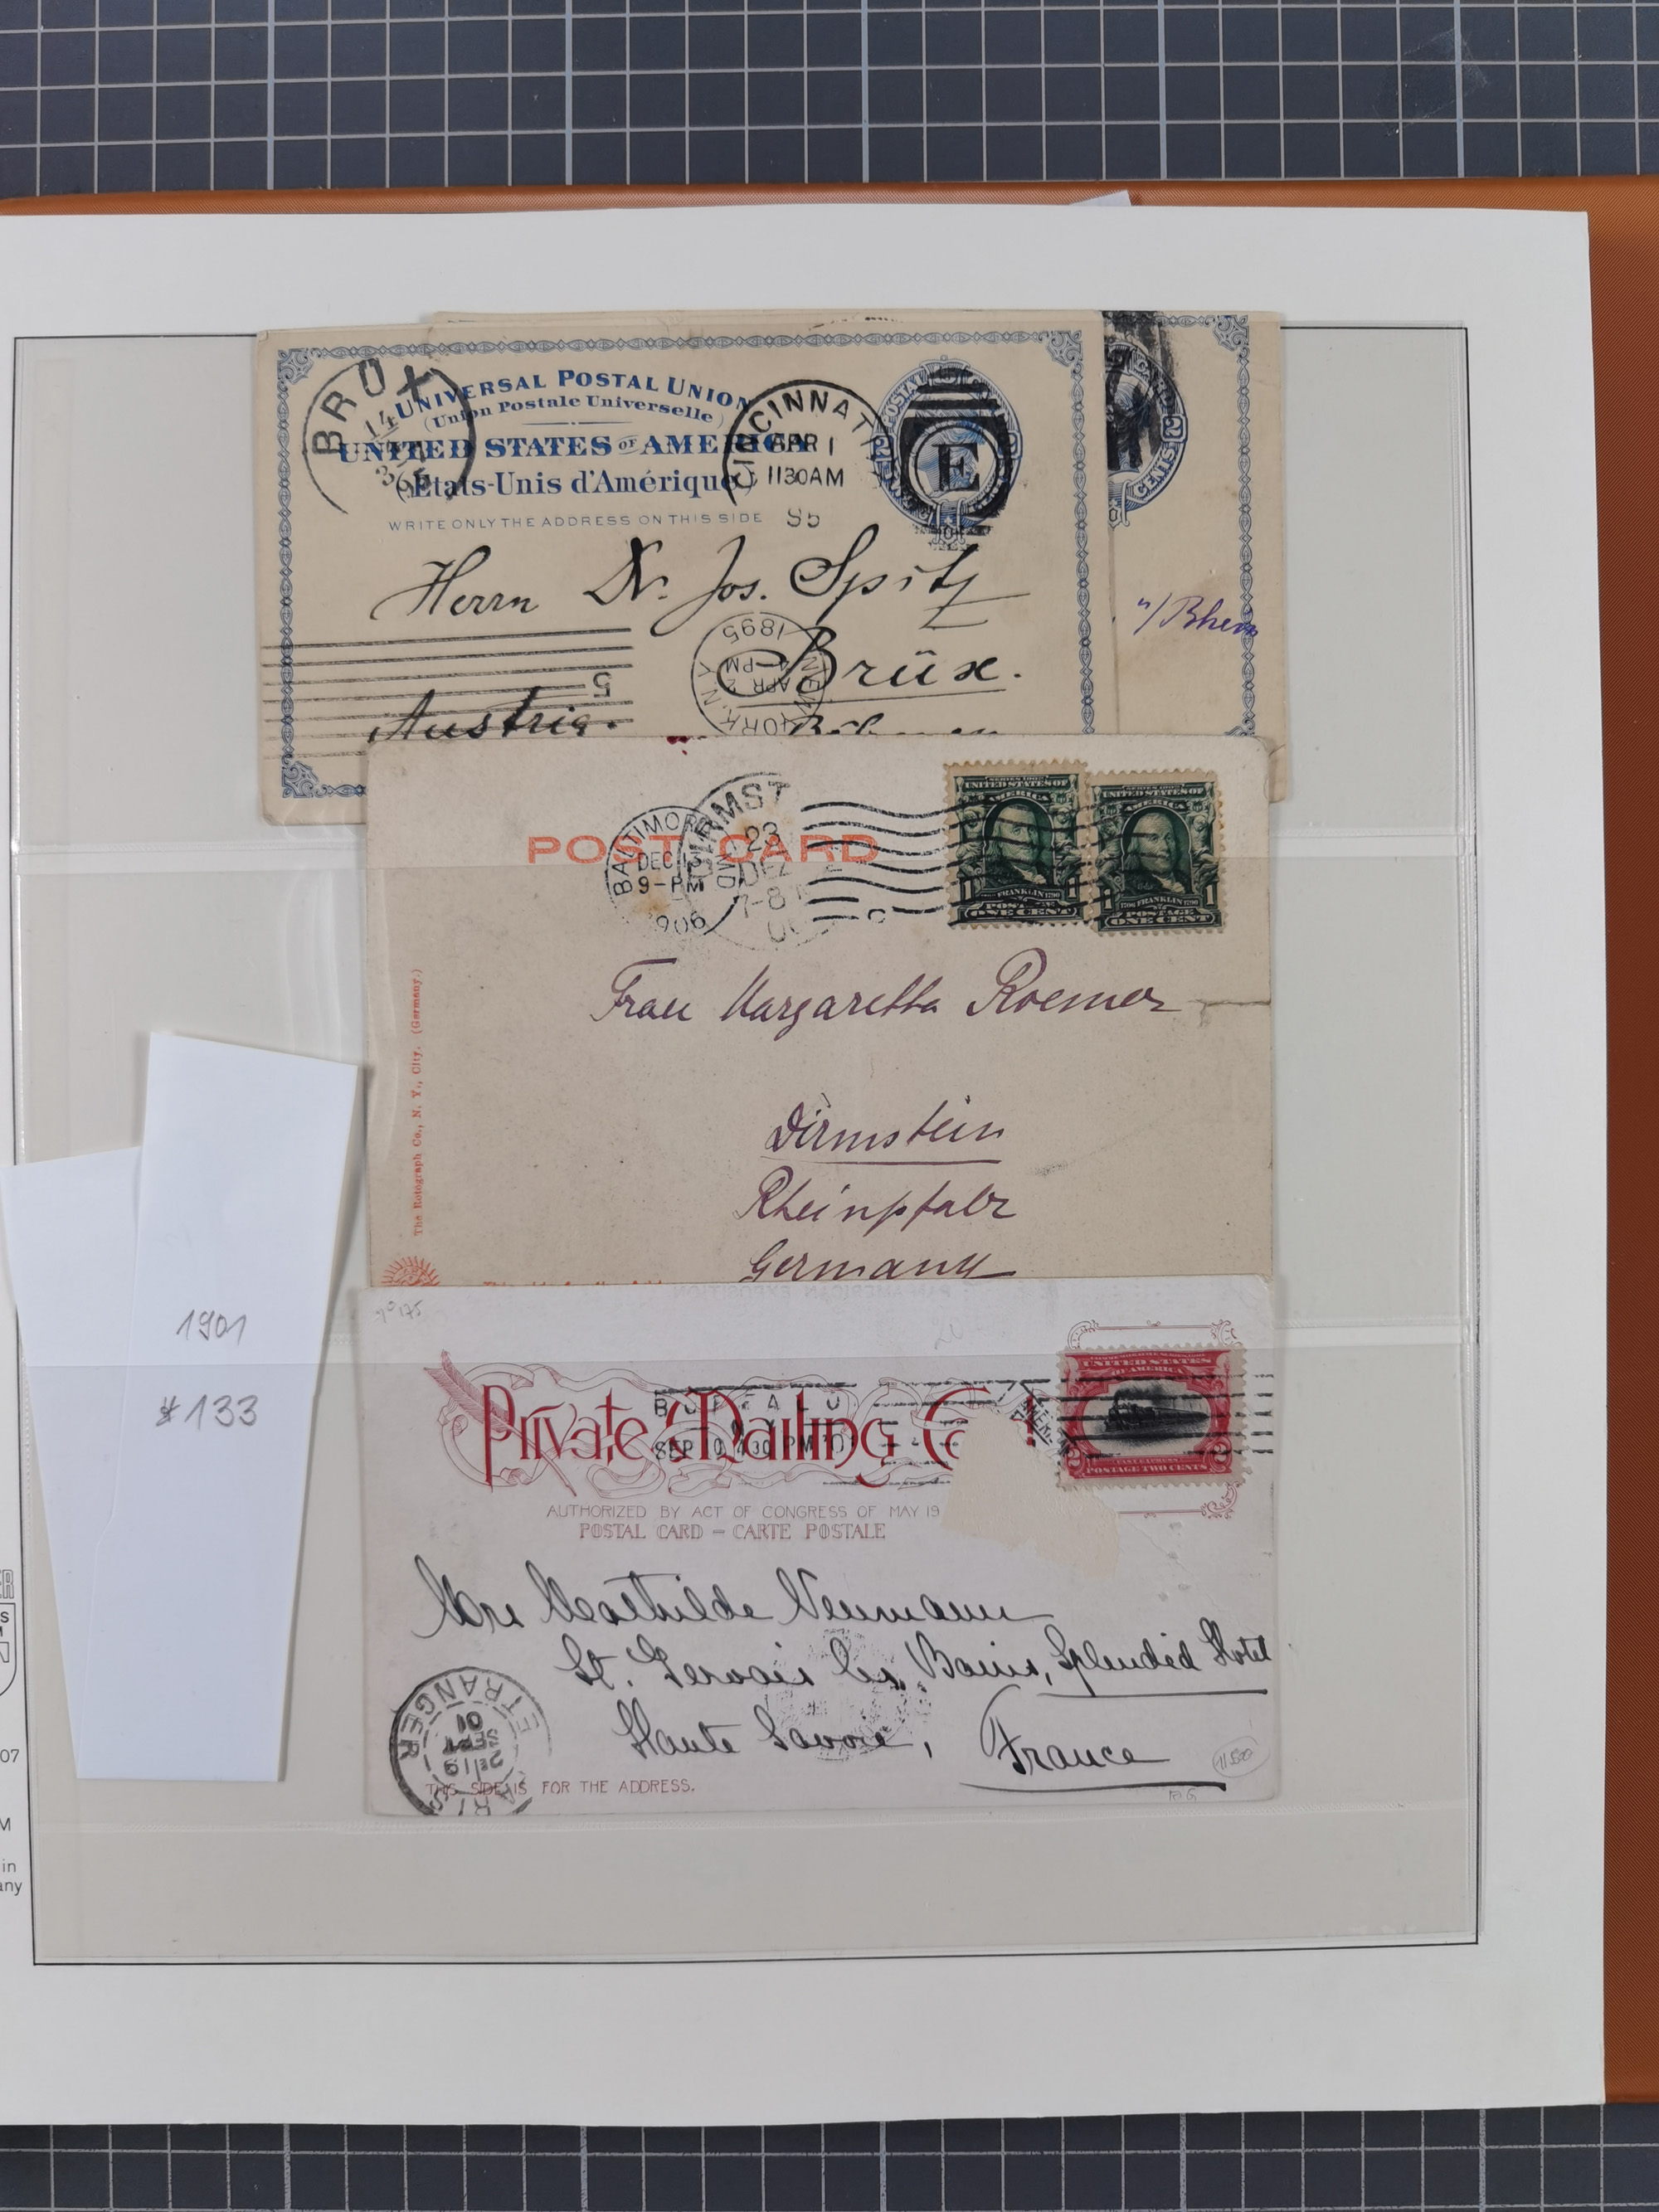 BRÜX
14/4
UNIVERSAL POSTAL UNION
(Union Postale Universelle)
UNITED STATES OF AMERICA
(États-Unis d'Amérique)
WRITE ONLY THE ADDRESS ON THIS SIDE
CINCINNATI
APR 1
1130AM
95
E
POSTAL
2
2
CENTS
Herrn Dr. Jos. Spitz
Brüx.
Austria.
1895
APR 2
4-PM
5
"/Rhein
POST CARD
BALTIMOR
DEC 13
9-PM
1906
DIRMST
23
DEZ
7-8
SERIES 1902
UNITED STATES OF
AMERICA
1 FRANKLIN 1790 1
POSTAGE
ONE CENT
SERIES 1902
UNITED STATES OF
AMERICA
1 1706 FRANKLIN 1790 1
POSTAGE
ONE CENT
Frau Margaretha Roemer
Dirmstein
Rheinpfalz
Germany
The Rotograph Co., N. Y., City. (Germany.)
PAN-AMERICAN EXPOSITION
Private Mailing Ca
BUFFALO
N.Y.
SEP 10 4 30 PM 01
UNITED STATES
OF AMERICA
2 2
POSTAGE TWO CENTS
AUTHORIZED BY ACT OF CONGRESS OF MAY 19
POSTAL CARD – CARTE POSTALE
Mrs Mathilde Neumann
St. Gervais les Bains, Splendid Hotel
Haute Savoie, France
PARIS
ETRANGER
19
SEPT
01
THIS SIDE IS FOR THE ADDRESS.
1901
*133
07
M
in
any